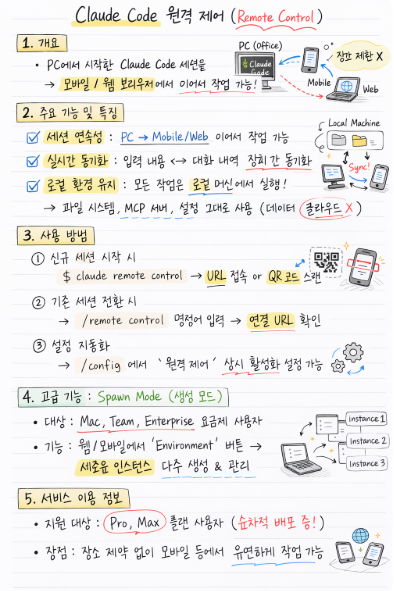 Claude Code 원격 제어 (Remote Control)
1. 개요
• PC에서 시작한 Claude Code 세션을
→ 모바일 / 웹 보리우저에서 이어서 작업 가능!
PC (Office)
Claude Code
장소 제한 X
Mobile
Web
2. 주요 기능 및 특징
세션 연속성 : PC → Mobile/Web 이어서 작업 가능
실시간 동기화 : 입력 내용 ↔ 대화 내역 장히 간 동기화
로컬 환경 유지 : 모든 작업은 로컬 머신에서 실행!
→ 파일 시스템, MCP 서버, 설정 그대로 사용 (데이터 클라우드 X)
Local Machine
Sync!
3. 사용 방법
① 신규 세션 시작 시
$ claude remote control → URL 접속 or QR 코드 스캔
② 기존 세션 전환 시
→ /remote control 명정어 입력 → 연결 URL 확인
③ 설정 지동화
→ /config 에서 '원격 제어' 상시 활성화 설정 가능
4. 고급 기능 : Spawn Mode (생성 모드)
• 대상 : Mac, Team, Enterprise 요금제 사용자
• 기능 : 웹/모바일에서 'Environment' 버튼 →
세존운 인스턴스 다주 생성 & 관리
Instance 1
Instance 2
Instance 3
5. 서비스 이용 정보
• 지원 대상 : Pro, Max 플랜 사용자 (순차적 배포 중!)
• 장점 : 장소 제약 없이 모바일 등에서 유연하게 작업 가능